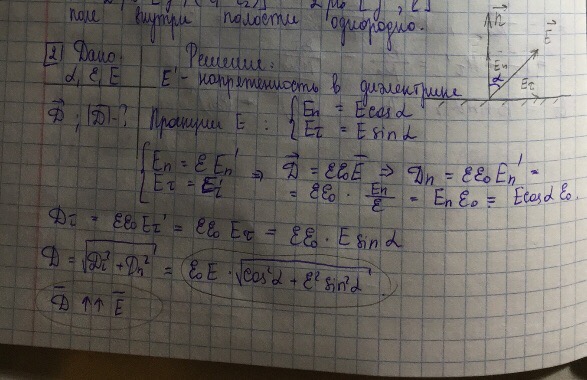 поле внутри полости однородно.
2 Дано: Решение:
α, ε, E E' - напряженность в диэлектрике
D⃗; |D⃗| - ? Проекции E: { En = E cosα
Eτ = E sinα
{ En = ε En' ⇒ D⃗ = εε₀E⃗ ⇒ Dn = εε₀En' =
Eτ = Eτ' = εε₀ · En/ε = Enε₀ = E cosα ε₀
Dτ = εε₀Eτ' = εε₀Eτ = εε₀ · E sinα
D = √(Dτ² + Dn²) = ε₀E · √(cos²α + ε² sin²α)
D⃗ ↑↑ E⃗
n⃗
E⃗
En
α
Eτ